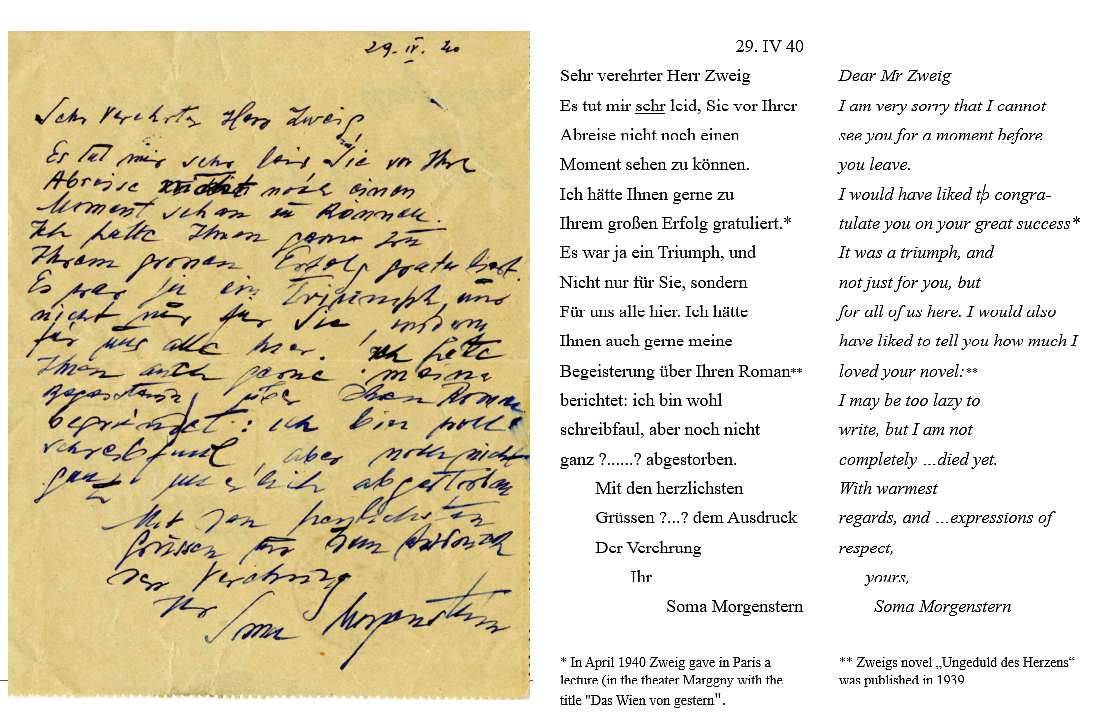 29. IV. 40
Sehr verehrter Herr Zweig,
Es tut mir sehr leid, Sie vor Ihrer
Abreise nicht noch einen
Moment sehen zu können.
Ich hätte Ihnen gerne zu
Ihrem grossen Erfolg gratuliert.
Es war ja ein Triumph, und
nicht nur für Sie, sondern
für uns alle hier. Ich hätte
Ihnen auch gerne meine
über Ihren Roman
begründet: ich bin wohl
schreibfaul, aber noch nicht
ganz abgestorben
Mit den herzlichsten
Grüssen dem Ausdruck
der Verehrung
Ihr
Soma Morgenstern
29. IV 40
Sehr verehrter Herr Zweig
Es tut mir sehr leid, Sie vor Ihrer
Abreise nicht noch einen
Moment sehen zu können.
Ich hätte Ihnen gerne zu
Ihrem großen Erfolg gratuliert.*
Es war ja ein Triumph, und
Nicht nur für Sie, sondern
Für uns alle hier. Ich hätte
Ihnen auch gerne meine
Begeisterung über Ihren Roman**
berichtet: ich bin wohl
schreibfaul, aber noch nicht
ganz ?......? abgestorben.
Mit den herzlichsten
Grüssen ?...? dem Ausdruck
Der Verehrung
Ihr
Soma Morgenstern
* In April 1940 Zweig gave in Paris a
lecture (in the theater Marggny with the
title "Das Wien von gestern".
Dear Mr Zweig
I am very sorry that I cannot
see you for a moment before
you leave.
I would have liked to congra-
tulate you on your great success*
It was a triumph, and
not just for you, but
for all of us here. I would also
have liked to tell you how much I
loved your novel:**
I may be too lazy to
write, but I am not
completely ...died yet.
With warmest
regards, and ...expressions of
respect,
yours,
Soma Morgenstern
** Zweigs novel „Ungeduld des Herzens“
was published in 1939